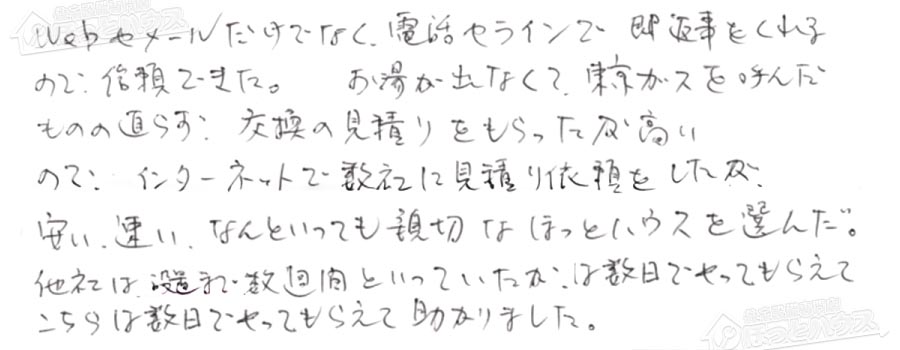 Webやメールだけでなく、電話やラインで即返事をくれる
ので、信頼できた。 お湯が出なくて、東京ガスを呼んだ
ものの直らず、交換の見積りをもらったが高い
ので、インターネットで数社に見積り依頼をしたが、
安い、速い、なんといっても親切なほっとハウスを選んだ。
他社は、設置まで数週間といっていたが、は数日でやってもらえて
こちらは数日でやってもらえて助かりました。
ほっとハウス